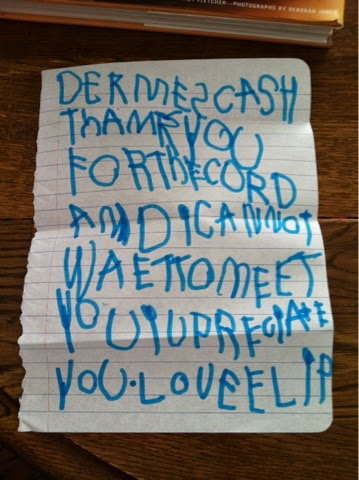 FLETCHER—PHOTOGRAPHS BY DEBORAH JONES
DER MES CASH
THANK YOU
FOR THE CORD
AND I CANNOT
WAET TO MEET
YOU I UPRECIATE
YOU. LOVE ELIP